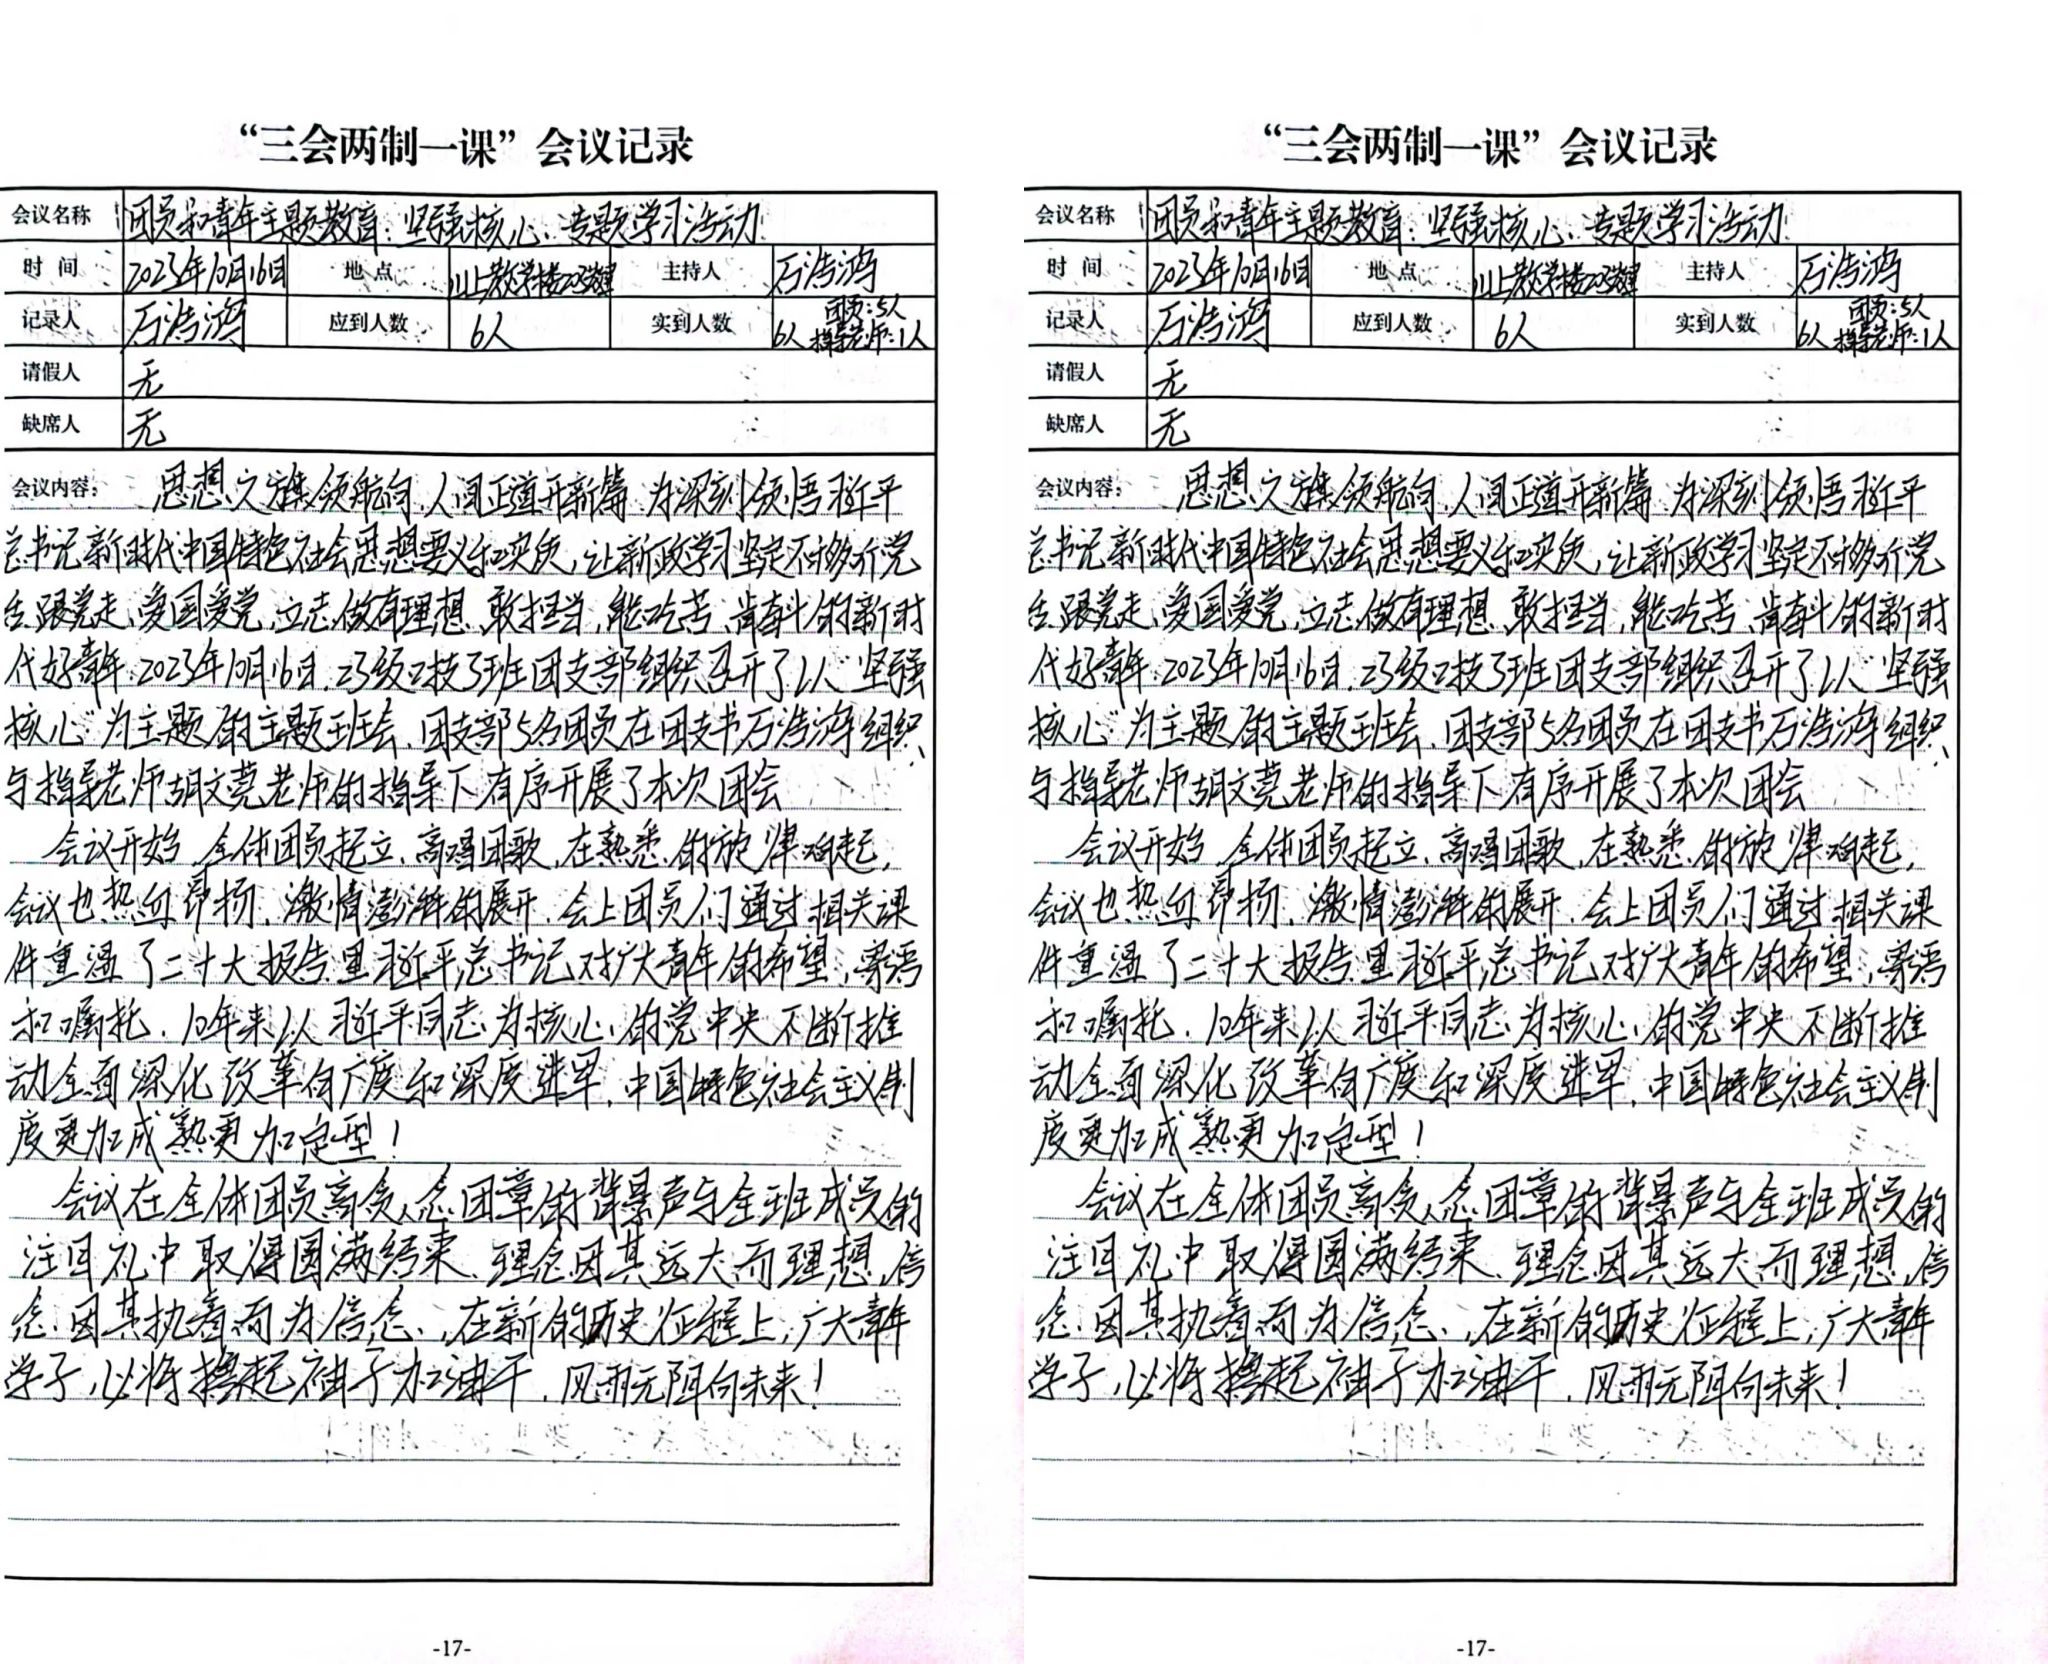 “三会两制一课”会议记录
会议名称 团员和青年主题教育：坚强核心、专题学习活动
时 间 2023年10月16日 地 点 川上教学楼 主持人 石浩鸿
记录人 石浩鸿 应到人数 6人 实到人数 6人 团员：5人 指导老师：1人
请假人 无
缺席人 无
会议内容： 思想之旗领航向，人间正道开新篇 为深刻领悟习近平
总书记新时代中国特色社会思想要义和实质，让新政学习坚定不移听党
话、跟党走、爱国爱党，立志做有理想、敢担当，能吃苦、肯奋斗的新时
代好青年.2023年10月16日.23级工技3班团支部组织召开了以“坚强
核心”为主题的主题班会.团支部5名团员在团支书石浩鸿组织、
与指导老师胡文莞老师的指导下有序开展了本次团会
会议开始，全体团员起立、高唱团歌，在熟悉的旋律响起，
会议也热血昂扬、激情澎湃的展开.会上团员们通过相关课
件重温了二十大报告里习近平总书记对扩大青年的希望，寄语
和嘱托.10年来以习近平同志为核心的党中央不断推
动全面深化改革向广度和深度进军，中国特色社会主义制
度更加成熟更加定型！
会议在全体团员高贪念团章的背景声与全班成员的
注目礼中取得圆满结束.理念因其远大而理想，信
念因其执着而为信念.，在新的历史征程上，广大青年
学子，必将撸起袖子加油干，风雨无阻向未来！
-17-
“三会两制一课”会议记录
会议名称 团员和青年主题教育：坚强核心、专题学习活动
时 间 2023年10月16日 地 点 川上教学楼 主持人 石浩鸿
记录人 石浩鸿 应到人数 6人 实到人数 6人 团员：5人 指导老师：1人
请假人 无
缺席人 无
会议内容： 思想之旗领航向，人间正道开新篇 为深刻领悟习近平
总书记新时代中国特色社会思想要义和实质，让新政学习坚定不移听党
话、跟党走、爱国爱党，立志做有理想、敢担当，能吃苦、肯奋斗的新时
代好青年.2023年10月16日.23级工技3班团支部组织召开了以“坚强
核心”为主题的主题班会.团支部5名团员在团支书石浩鸿组织、
与指导老师胡文莞老师的指导下有序开展了本次团会
会议开始，全体团员起立、高唱团歌，在熟悉的旋律响起，
会议也热血昂扬、激情澎湃的展开.会上团员们通过相关课
件重温了二十大报告里习近平总书记对扩大青年的希望，寄语
和嘱托.10年来以习近平同志为核心的党中央不断推
动全面深化改革向广度和深度进军，中国特色社会主义制
度更加成熟更加定型！
会议在全体团员高贪念团章的背景声与全班成员的
注目礼中取得圆满结束.理念因其远大而理想，信
念因其执着而为信念.，在新的历史征程上，广大青年
学子，必将撸起袖子加油干，风雨无阻向未来！
-17-